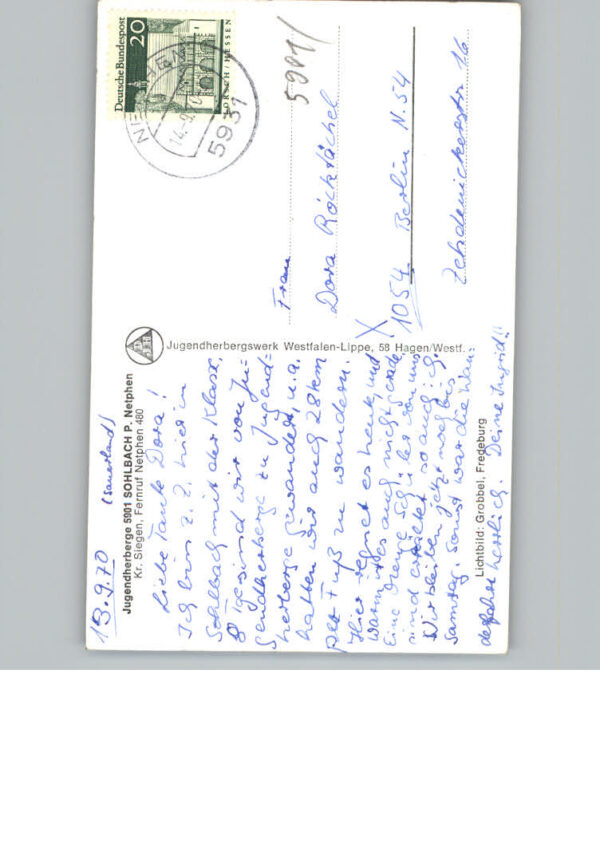 13.9.70 (Sauerland)
Jugendherberge 5901 SOHLBACH P. Netphen
Kr. Siegen, Fernruf Netphen 480
Liebe Tante Dora!
Ich bin z. Z. hier in
Sohlbach mit der Klasse,
8 Tage sind wir von Ju-
gendherberge zu Jugend-
herberge gewandert, u.a.
hatten wir auch 28 km
per Fuß zu wandern.
Hier regnet es heute und
warm ist es auch nicht gerade,
Eine Menge Schüler von uns
sind erkältet so auch ich.
Wir bleiben jetzt noch bis
Samstag. Sonst war die Wan-
derfahrt herrlich. Deine Ingrid!!
Lichtbild: Grobbel, Fredeburg
Jugendherbergswerk Westfalen-Lippe, 58 Hagen/Westf.
Deutsche Bundespost
20
LORSCH/HESSEN
5931
5901/
Frau
Dora Rockstächel
1054 Berlin N. 54
Zehdenickerstr 16